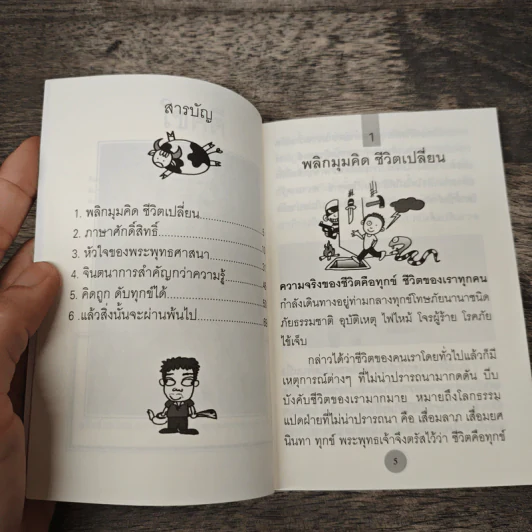 สารบัญ
1. พลิกมุมคิด ชีวิตเปลี่ยน
2. ภาษาศักดิ์สิทธิ์
3. หัวใจของพระพุทธศาสนา
4. จินตนาการสำคัญกว่าความรู้
5. คิดถูก ดับทุกข์ได้
6 .แล้วสิ่งนั้นจะผ่านพ้นไป
1
พลิกมุมคิด ชีวิตเปลี่ยน
ความจริงของชีวิตคือทุกข์ ชีวิตของเราทุกคน
กำลังเดินทางอยู่ท่ามกลางทุกข์โทษภัยนานาชนิด
ภัยธรรมชาติ อุบัติเหตุ ไฟไหม้ โจรผู้ร้าย โรคภัย
ไข้เจ็บ
กล่าวได้ว่าชีวิตของคนเราโดยทั่วไปแล้วก็มี
เหตุการณ์ต่างๆ ที่ไม่น่าปรารถนามากดดัน บีบ
บังคับชีวิตของเรามากมาย หมายถึงโลกธรรม
แปดฝ่ายที่ไม่น่าปรารถนา คือ เสื่อมลาภ เสื่อมยศ
นินทา ทุกข์ พระพุทธเจ้าจึงตรัสไว้ว่า ชีวิตคือทุกข์
5